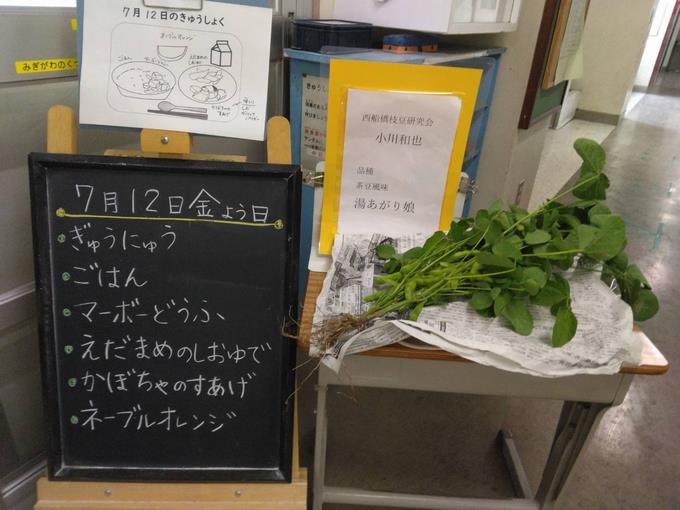 7月12日のきゅうしょく
ネーブルオレンジ
ごはん
みぎがわのく
7月12日金よう日
ぎゅうにゅう
ごはん
マーボーどうふ
えだまめのしおゆで
かぼちゃのすあげ
ネーブルオレンジ
西船橋枝豆研究会
小川和也
品種
茶豆風味
湯あがり娘